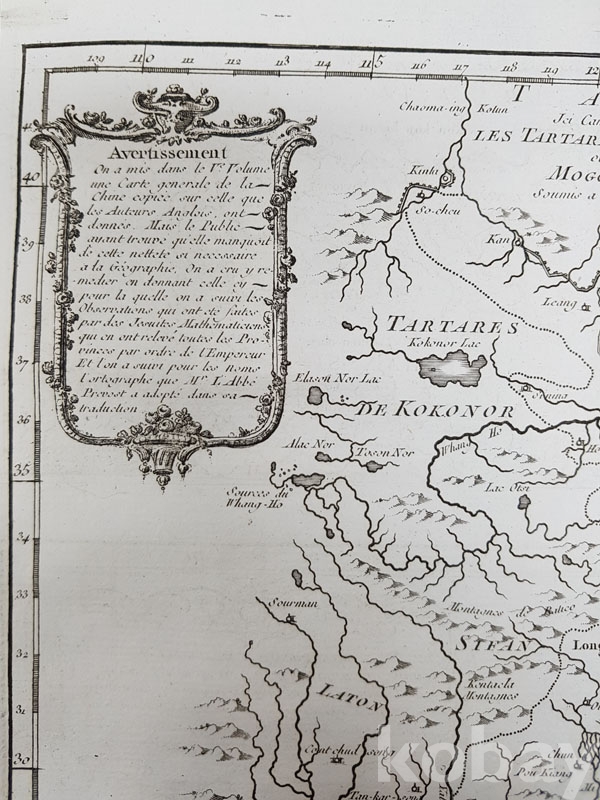 109 110 111 112 113 114 115 116 117 118 119
Avertissement
On a mis dans le Ve. Volume
une Carte generale de la
Chine copiée sur celle que
les Auteurs Anglois, ont
donnée. Mais le Public
aiant trouvé qu'elle manquoit
de cette netteté si necessaire
à la Géographie. On a cru y re-
medier en donnant celle cy
pour la quelle on a suivi les
Observations qui ont été faites
par des Jesuites Mathematiciens
qui en ont relevé toutes les Pro-
vinces par ordre de l'Empereur
Et l'on a suivi pour les noms
l'ortographe que Mr. L'Abbé
Prevost a adopté dans sa
traduction
40
39
38
37
36
35
34
33
32
31
30
T A
Chaoma-ing
Kolun
Ici
LES TARTAR
MOG
Soumis a
So-cheu
Kan
Leang
TARTARES
Kokonor Lac
Elason Nor Lac
DE KOKONOR
Sining
Alac Nor
Toson Nor
Whang Ho
Ho
Lac Otsi
Sources du
Whang-Ho
Sourman
Montagnes de
SIFAN
Long
LATON
Montagnes
Chun
Pou-Kiang
kobay